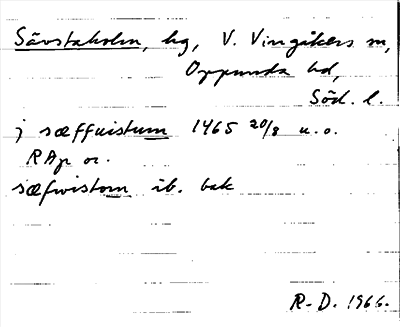 Sävstaholm, hg, V. Vingåkers sn,
Oppunda hd,
Söd. l.
j sæffuistum 1465 20/8 u.o.
RAp or.
sæfwistom ib. bak
R-D. 1966.